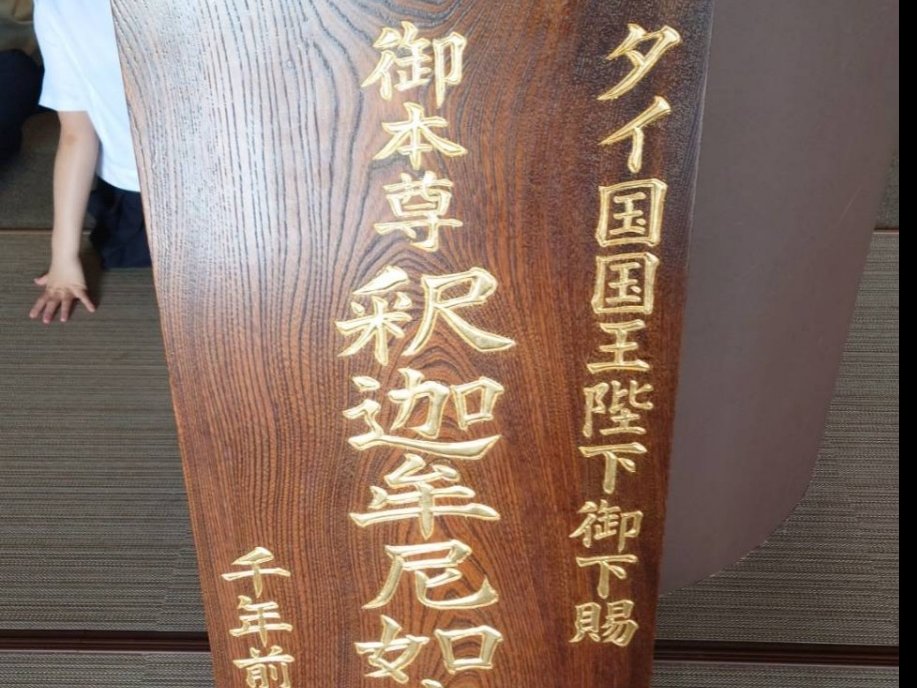 タイ国国王陛下御下賜
御本尊 釈迦牟尼如
千年前